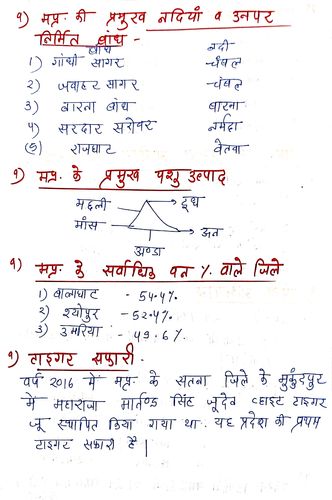 १) म.प्र. की प्रमुख नदियाँ व उनपर
निर्मित बाँध
बाँध नदी
1) गाँधी सागर चंबल
2) जवाहर सागर चंबल
3) बारना बाँध बारना
4) सरदार सरोवर नर्मदा
(5) राजघाट बेतवा
१) म.प्र. के प्रमुख पशु उत्पाद
मछली दूध
माँस ऊन
अण्डा
१) म.प्र. के सर्वाधिक वन % वाले जिले
1) बालाघाट - 54.4%
2) श्योपुर - 52.4%
3) उमरिया - 49.6%
१) टाइगर सफारी -
वर्ष 2016 में म.प्र. के सतना जिले के मुकुंदपुर
में महाराजा मार्तण्ड सिंह जूदेव व्हाइट टाइगर
जू स्थापित किया गया था. यह प्रदेश की प्रथम
टाइगर सफारी है |